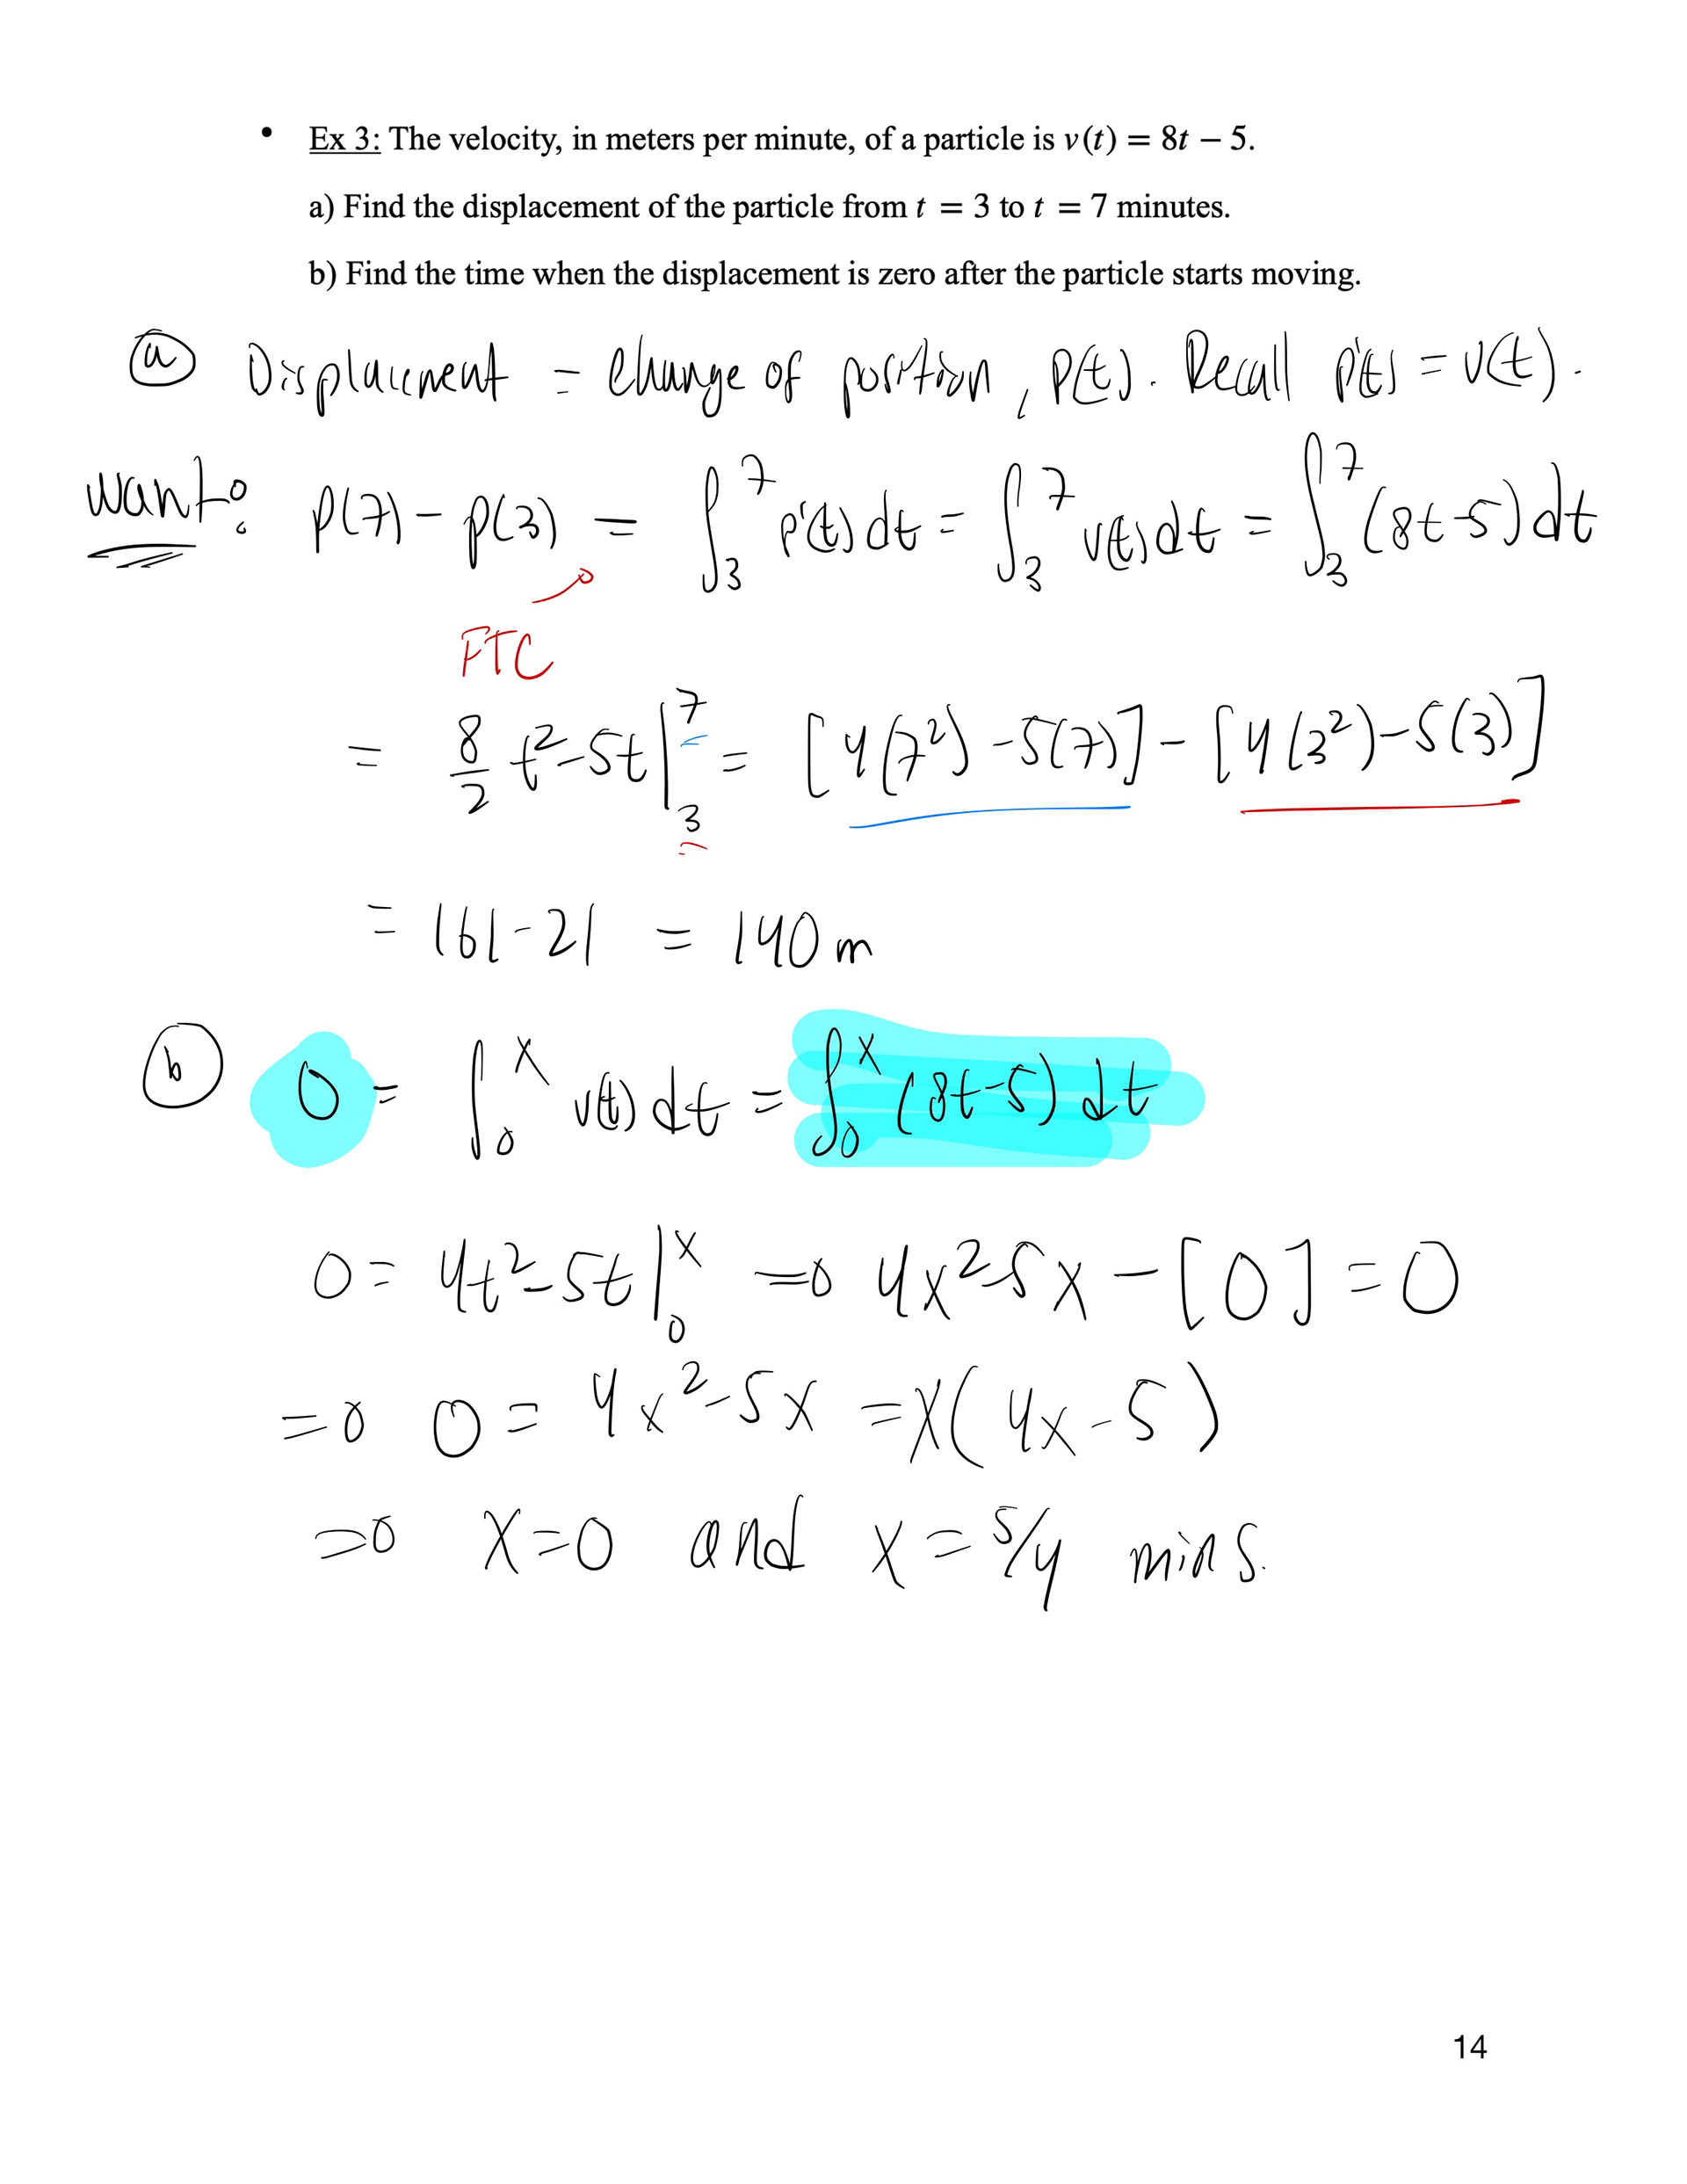 • Ex 3: The velocity, in meters per minute, of a particle is v(t) = 8t − 5.
a) Find the displacement of the particle from t = 3 to t = 7 minutes.
b) Find the time when the displacement is zero after the particle starts moving.
ⓐ Displacement = Change of position, P(t). Recall P'(t) = v(t).
Want: P(7) − P(3) = ∫₃⁷ P'(t) dt = ∫₃⁷ v(t) dt = ∫₃⁷ (8t − 5) dt
FTC
= 8/2 t² − 5t |₃⁷ = [4(7²) − 5(7)] − [4(3²) − 5(3)]
= 161 − 21 = 140 m
ⓑ 0 = ∫₀ˣ v(t) dt = ∫₀ˣ (8t − 5) dt
0 = 4t² − 5t |₀ˣ ⇒ 4x² − 5x − [0] = 0
⇒ 0 = 4x² − 5x = x(4x − 5)
⇒ x = 0 and x = 5/4 mins.
14